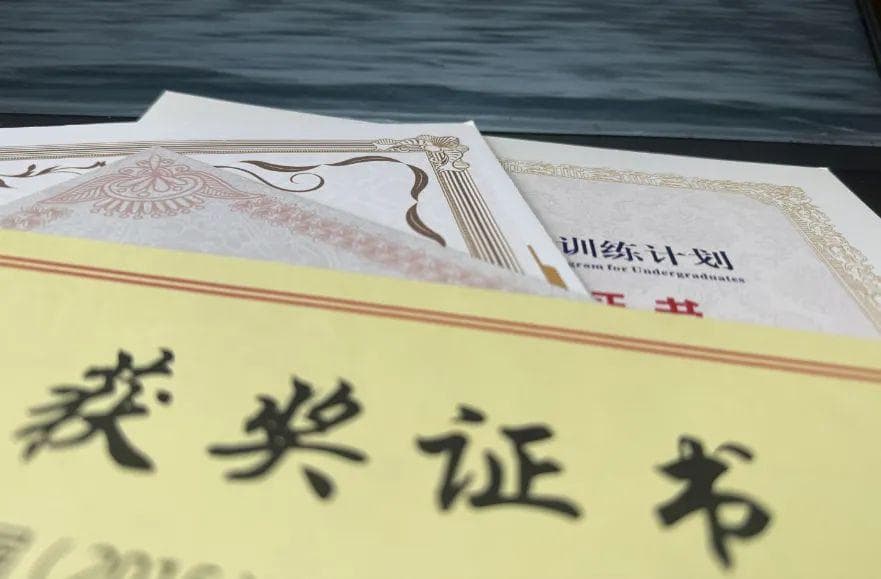 训练计划
gram for Undergraduates
证书
获奖证书
(2016